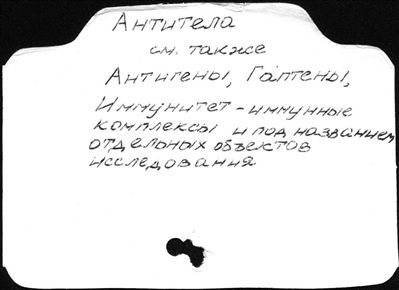 Антитела
см. также
Антигены, Гаптены,
Иммунитет - иммунные
комплексы и под названием
отдельных объектов
исследования